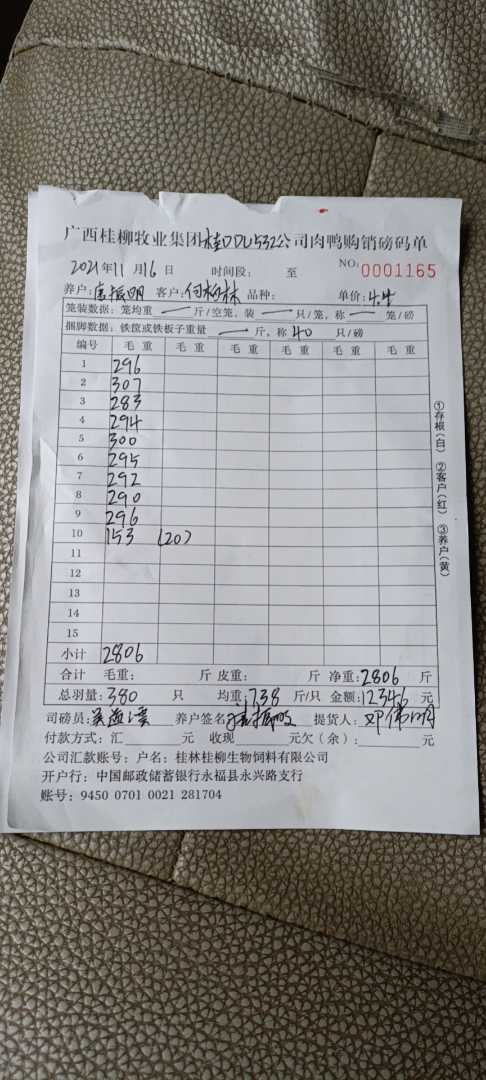 广西桂柳牧业集团桂DDU532公司肉鸭购销磅码单
2021年11月16日 时间段： 至 NO: 0001165
养户: 客户:何柳林 品种: 单价:4.4
笼装数据: 笼均重 — 斤/空笼，装 — 只/笼，称 — 笼/磅
捆脚数据: 铁筐或铁板子重量 — 斤，称 40 只/磅
编号 毛重 毛重 毛重 毛重 毛重 毛重
1 296
2 307
3 283
4 294
5 300
6 295
7 292
8 290
9 296
10 153 (20)
11
12
13
14
15
小计 2806
合计 毛重: 斤 皮重: 斤 净重:2806 斤
总羽量:380 只 均重:7.38 斤/只 金额:12346 元
司磅员: 养户签名: 提货人:
付款方式: 汇 元 收现 元欠（余）: 元
公司汇款账号: 户名: 桂林桂柳生物饲料有限公司
开户行: 中国邮政储蓄银行永福县永兴路支行
账号: 9450 0701 0021 281704
①存根(白) ②客户(红) ③养户(黄)